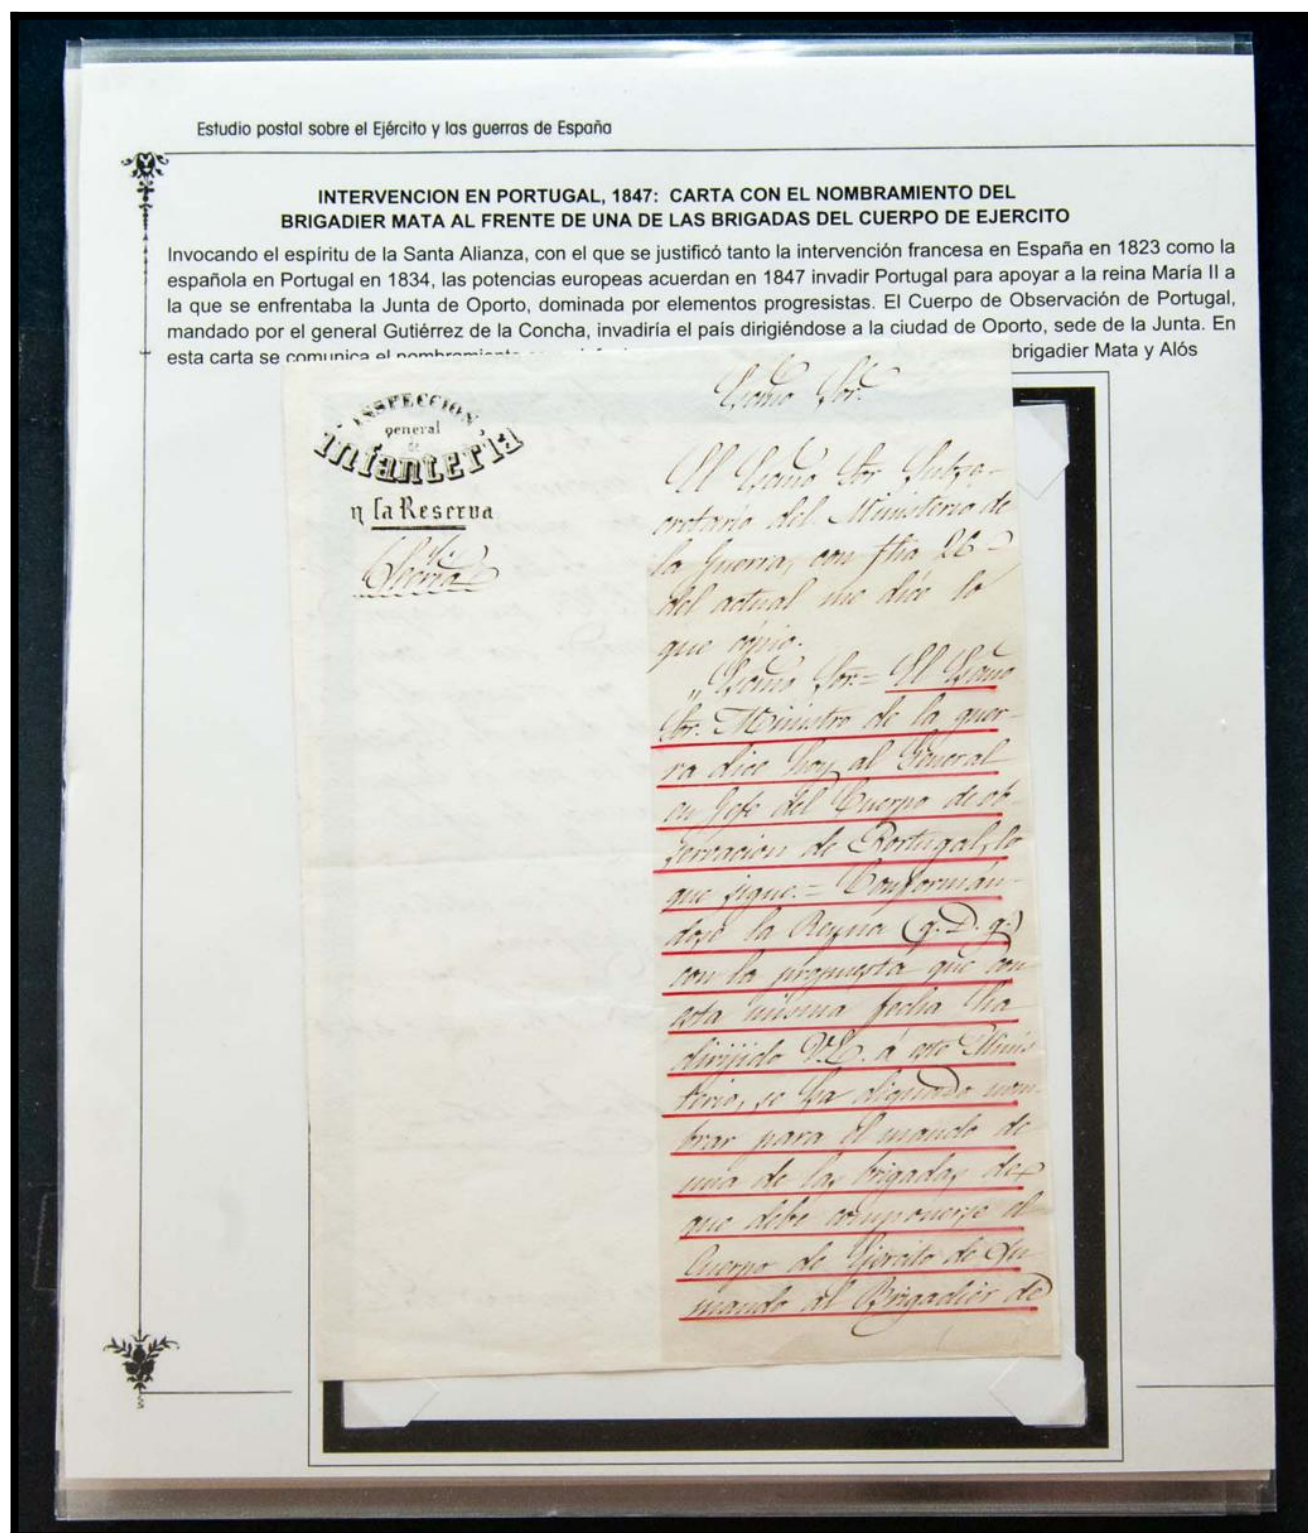 Estudio postal sobre el Ejército y las guerras de España
INTERVENCION EN PORTUGAL, 1847: CARTA CON EL NOMBRAMIENTO DEL
BRIGADIER MATA AL FRENTE DE UNA DE LAS BRIGADAS DEL CUERPO DE EJERCITO
Invocando el espíritu de la Santa Alianza, con el que se justificó tanto la intervención francesa en España en 1823 como la
española en Portugal en 1834, las potencias europeas acuerdan en 1847 invadir Portugal para apoyar a la reina María II a
la que se enfrentaba la Junta de Oporto, dominada por elementos progresistas. El Cuerpo de Observación de Portugal,
mandado por el general Gutiérrez de la Concha, invadiría el país dirigiéndose a la ciudad de Oporto, sede de la Junta. En
esta carta se comunica el nombramiento brigadier Mata y Alós
INSPECCION
general
de
infantería
y la Reserva
Secría
Escmo Sor.
El Escmo Sor Subse-
cretario del Ministerio de
la Guerra, con fha 26
del actual me dice lo
que cópio.
"Escmo Sor.= El Escmo
Sor. Ministro de la guer-
ra dice hoy al General
en Jefe del Cuerpo de ob-
servacion de Portugal, lo
que sigue.= Conformán-
dose la Reyna (q. D. g.)
con la propuesta que con
esta misma fecha ha
dirijido V.E. á este Minis
terio, se ha dignado nom-
brar para el mando de
una de las brigadas de
que debe componerse el
Cuerpo de Ejercito de su
mando al Brigadier de